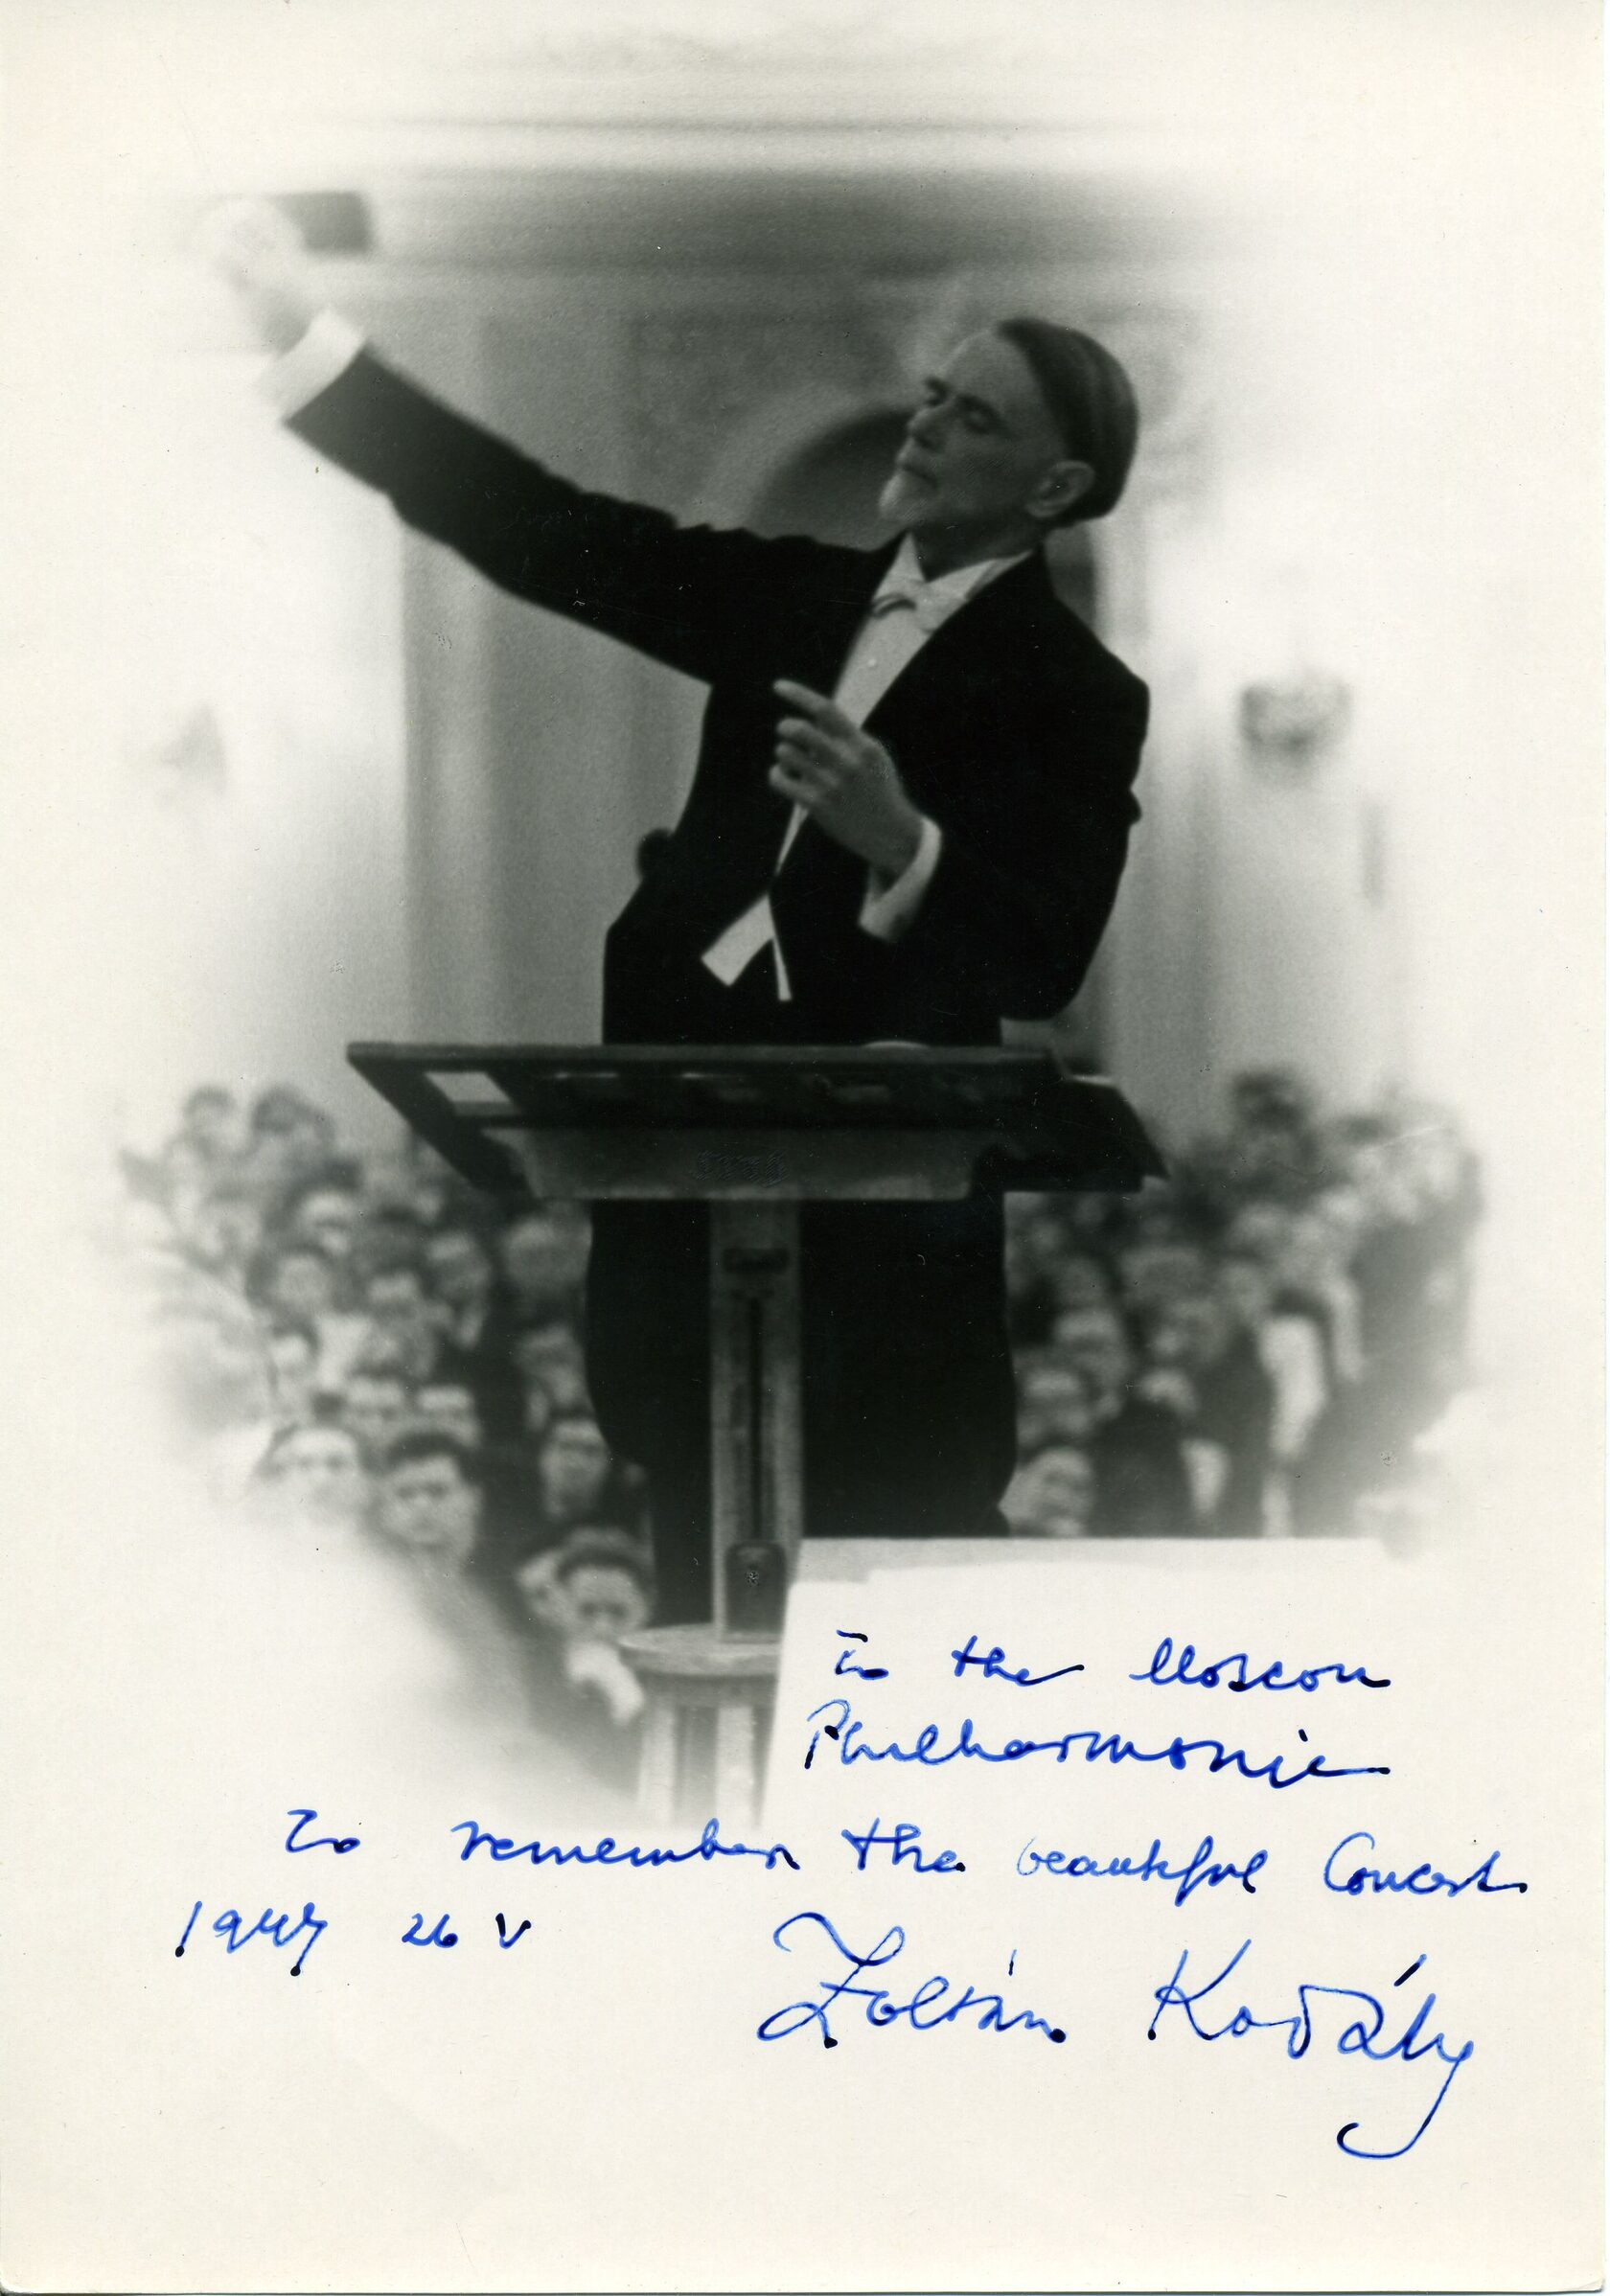 To the Moscow
Philharmonie
To remember the beautiful Concert
1947 26 V
Zoltán Kodály